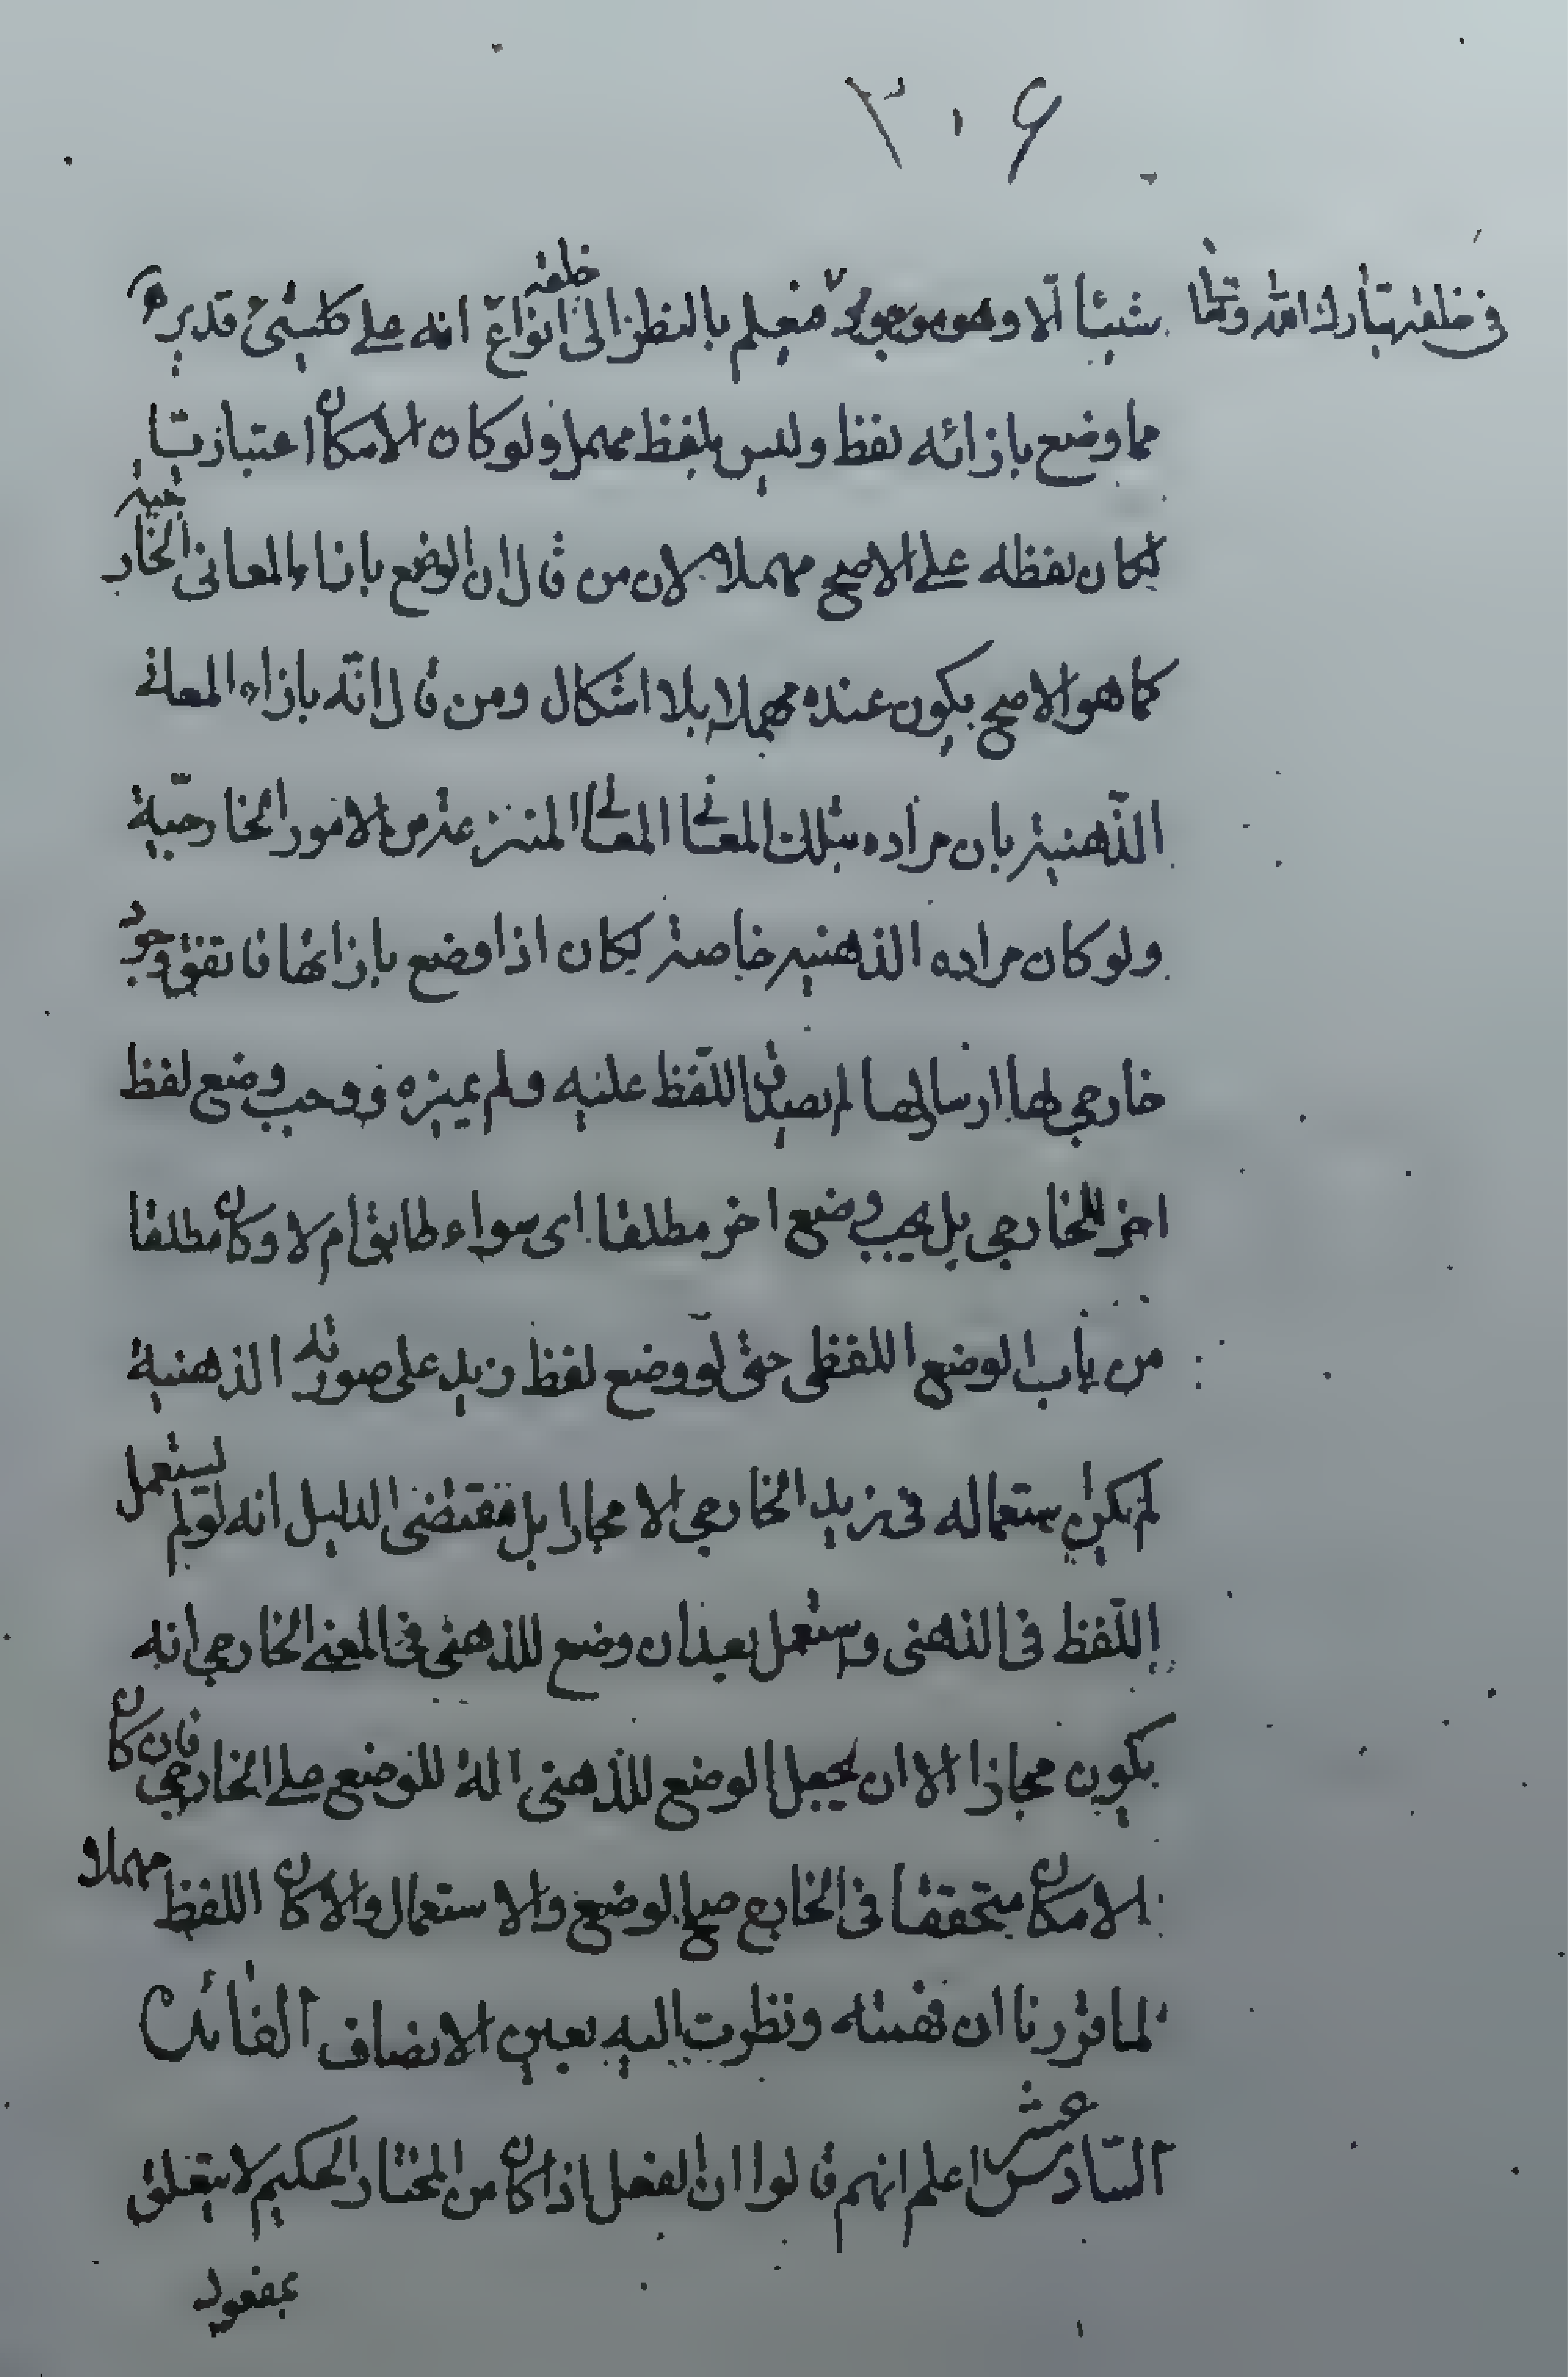 ٣٠۶
شيئا الا وهو موجود فيعلم بالنظر الى انواع خلقه انه على كلشئ قدير
في خلقه تبارك الله وتعا
مما وضع بازائه لفظ وليس بلفظ مهمل ولو كان الامكان اعتباريا
لكان لفظه على الاصح مهملا لان من قال ان الوضع بازاء المعانى الخارجية
كما هو الاصح يكون عنده مهملا بلا اشكال ومن قال انّه بازاء المعانى
الذّهنية بان مراده بتلك المعانى المعانى المنتزعة من الامور الخارجيّة
ولو كان مراده الذهنية خاصة لكان اذا وضع بازائها فاتفق وجود
خارجي لها ارسالها لم يصدق اللّفظ عليه ولم يميزه ووجب وضع لفظ
اخر للخارجي بل يجب وضع اخر مطلقا اى سواء طابق ام لا وكان مطلقا
من باب الوضع اللفظى حتى لو وضع لفظ زيد على صورته الذهنية
لم يكن استعماله فى زيد الخارجي الا مجازا بل مقتضى الدليل انه لو لم يستعمل
اللّفظ فى الذهنى واستعمل بعد ان وضع للذهنى فى المعنى الخارجي انه
يكون مجازا الا ان يجعل الوضع للذهنى الة للوضع على الخارجي فان كان
الامكان متحققا فى الخارج صح الوضع والاستعمال والا كان اللفظ مهملا
لما قررنا ان فهمته ونظرت اليه بعين الانصاف الفائدة
السّادس عشر اعلم انهم قالوا ان الفعل اذا كان من المختار الحكيم لا يتعلق